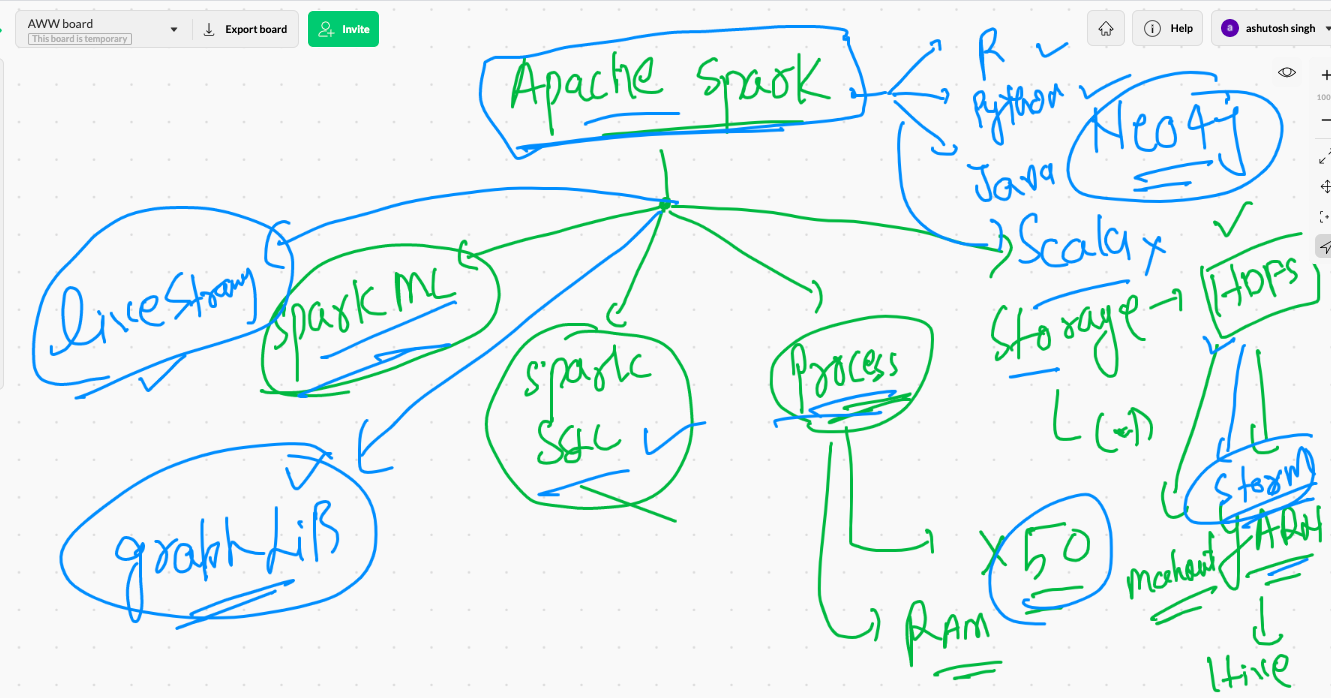 AWW board
This board is temporary
Export board
Invite
Help
a
ashutosh singh
100
Apache Spark
R
Python
Java
Scala x
Neo4j
live Stramy
Spark ML
Spark
SQL
Process
Storage → HDFS
(*)
Storm
graph LiB
x 50
RAM
mahout
YARN
Hive